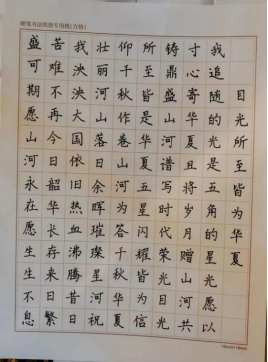 硬笔书法练习专用纸(方格)
目光所至皆为华夏
我追随的光是五角的星光愿以
寸心寄华夏且将岁月赠山河共
铸鼎盛山河谱写时代荣光目光
所至皆是华夏五星闪耀皆为信
仰千秋作卷山河为答千秋华夏
壮丽河山落日余晖璀璨星河祝
我泱泱大国依旧热血沸腾昔日
苦难不再今日韶华长存来日繁
盛可期愿山河永在愿生生不息